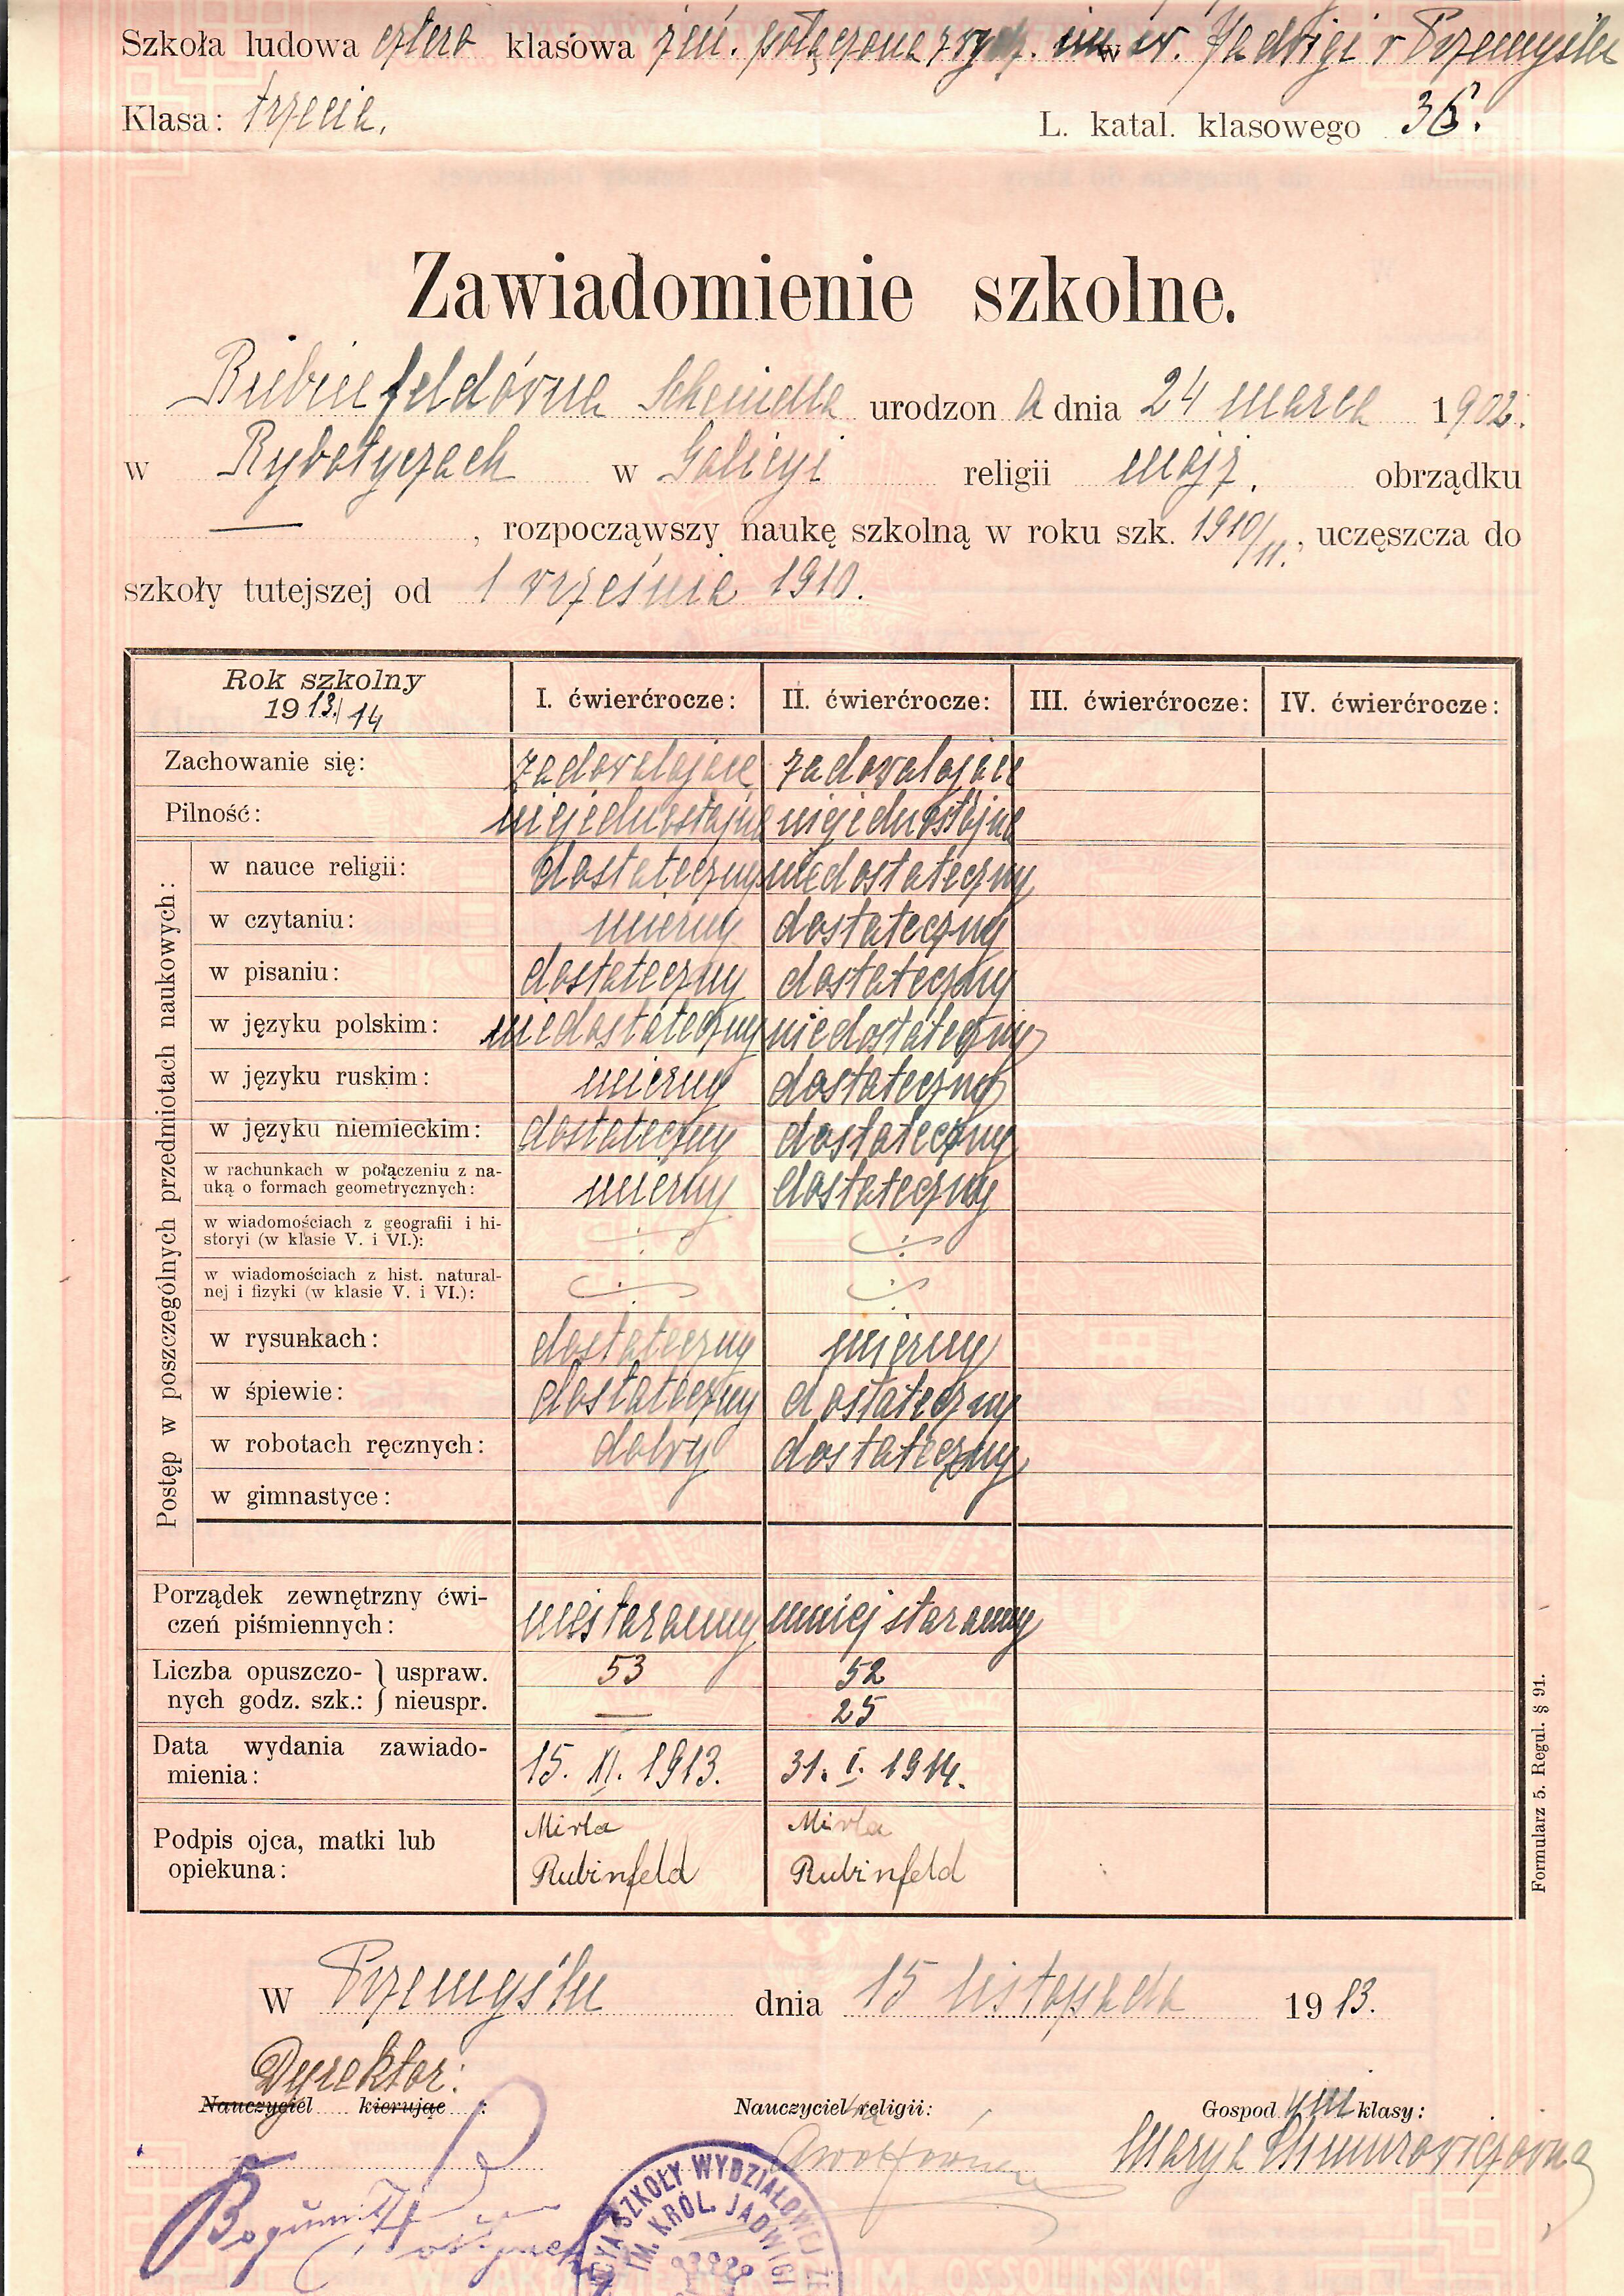 Szkoła ludowa cztero klasowa żeń. połączona z wydz. im. św. Jadwigi w Przemyślu
Klasa: trzecia. L. katal. klasowego 36.
Zawiadomienie szkolne.
Rubinfeldówna Scheindla urodzona dnia 24 marca 1902.
w Rybotyczach w Galicyi religii mojż. obrządku
—, rozpocząwszy naukę szkolną w roku szk. 1910/11., uczęszcza do
szkoły tutejszej od 1 września 1910.
Rok szkolny 1913/14 I. ćwierćrocze: II. ćwierćrocze: III. ćwierćrocze: IV. ćwierćrocze:
Zachowanie się: zadowalające zadowalające
Pilność: niejednostajna niejednostajna
Postęp w poszczególnych przedmiotach naukowych:
w nauce religii: dostateczny niedostateczny
w czytaniu: mierny dostateczny
w pisaniu: dostateczny dostateczny
w języku polskim: niedostateczny niedostateczny
w języku ruskim: mierny dostateczny
w języku niemieckim: dostateczny dostateczny
w rachunkach w połączeniu z na-
uką o formach geometrycznych: mierny dostateczny
w wiadomościach z geografii i hi-
storyi (w klasie V. i VI.):
w wiadomościach z hist. natural-
nej i fizyki (w klasie V. i VI.):
w rysunkach: dostateczny mierny
w śpiewie: dostateczny dostateczny
w robotach ręcznych: dobry dostateczny
w gimnastyce:
Porządek zewnętrzny ćwi-
czeń piśmiennych: niestaranny mniej staranny
Liczba opuszczo- } uspraw. 53 52
nych godz. szk.: } nieuspr. — 25
Data wydania zawiado-
mienia: 15. XI. 1913. 31. I. 1914.
Podpis ojca, matki lub
opiekuna: Mirla Rubinfeld Mirla Rubinfeld
Formularz 5. Regul. § 91.
W Przemyślu dnia 15 listopada 1913.
Dyrektor:
Nauczyciel kierując : Nauczyciel religii: Gospodyni klasy:
Marya
SZKOŁY WYDZIAŁOWEJ ŻE
IM. KRÓL. JADWIGI